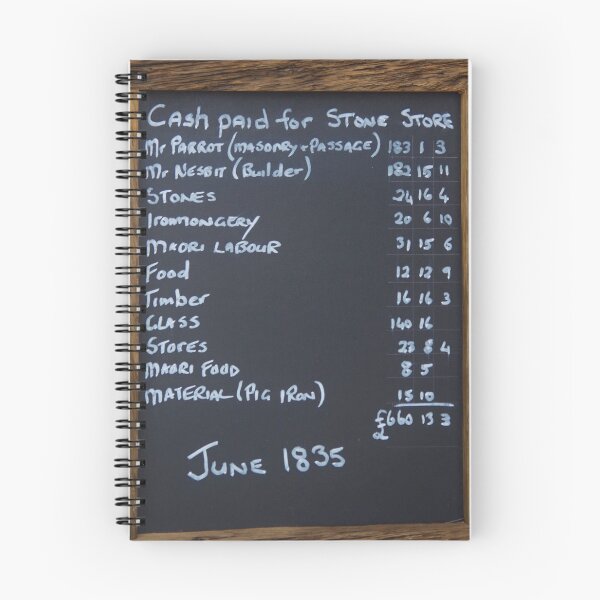 Cash paid for STONE STORE
Mr PARROT (MASONRY + PASSAGE) 183 1 3
Mr NESBIT (Builder) 182 15 11
STONES 24 16 4
IRONMONGERY 20 6 10
MAORI LABOUR 31 15 6
Food 12 12 9
Timber 16 16 3
GLASS 140 16
STORES 23 8 4
MAORI FOOD 8 5
MATERIAL (PIG IRON) 15 10
£660 13 3
JUNE 1835